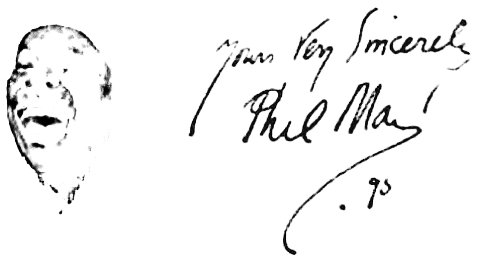 Yours Very Sincerely
Phil May
. 95